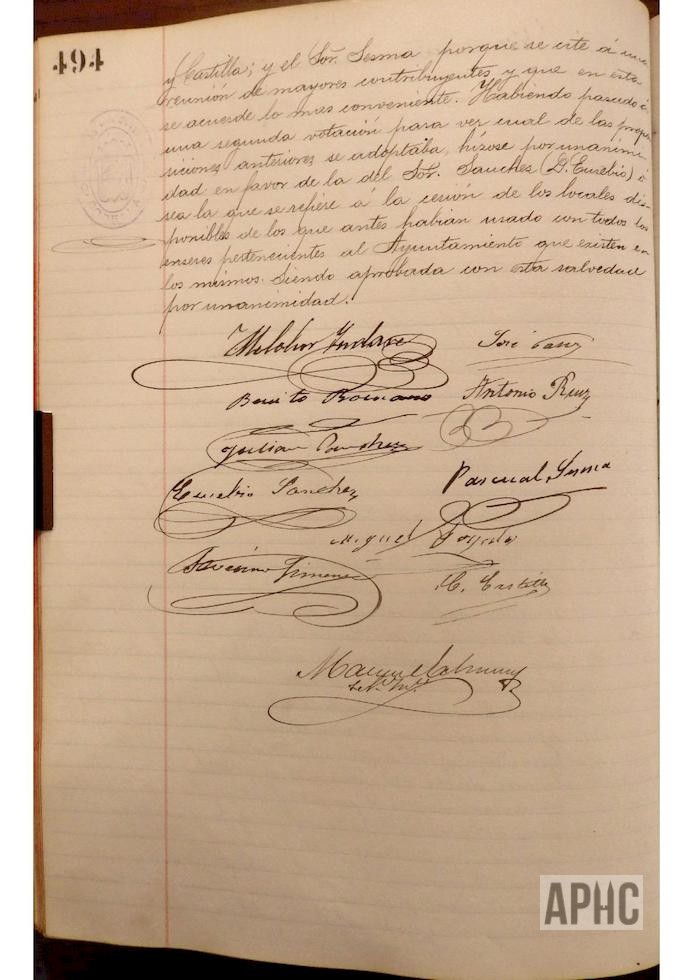 494
y Castilla; y el Sor. Sesma porque se cite á una
reunión de mayores contribuyentes y que en esta
se acuerde lo mas conveniente. Habiendo pasado á
una segunda votación para ver cual de las propo-
siciones anteriores se adoptaba, hízose por unanimi-
dad en favor de la del Sor. Sanchez (D. Eusebio) ó
sea la que se refiere á la cesión de los locales dis-
ponibles de los que antes habían usado con todos los
enseres pertenecientes al Ayuntamiento que existen en
los mismos. Siendo aprobada con esta salvedad
por unanimidad.
Melchor
José
Benito Romano
Antonio Ruiz
Julian Sanchez
Eusebio Sanchez
Pascual Sesma
Miguel
Jimenez
C. Castilla
Manuel
APHC